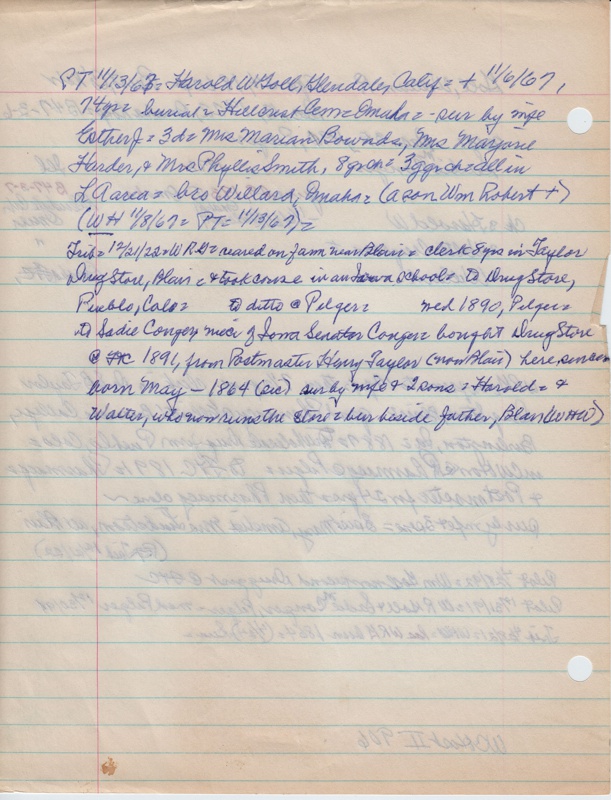 PT 11/13/67 = Harold W Goll, Glendale, Calif = + 11/6/67,
74yr = burial = Hillcrest Cem = Omaha = - sur by wife
Esther J = 3d = Mrs Marian Bownds, Mrs Marjorie
Harder, & Mrs Phyllis Smith, 8grch = 3ggrch = all in
L A area = bro Willard, Omaha = (a son Wm Robert +)
(WH 11/8/67 = PT = 11/13/67) =
Trib = 12/21/22 = W R G = reared on farm near Blair = clerk 8yrs in Taylor
Drug Store, Blair = & took course in an Iowa school = to Drug Store,
Pueblo, Colo = to ditto @ Pilger = med 1890, Pilger =
to Sadie Conger, niece of Iowa Senator Conger = bought Drug Store
@ 1891, from Postmaster Henry Taylor (now Blair) here,
born May - 1864 (sic) sur by wife & 2 sons = Harold = &
Walter, who now runs the store = bur beside father, Blair (WHW)